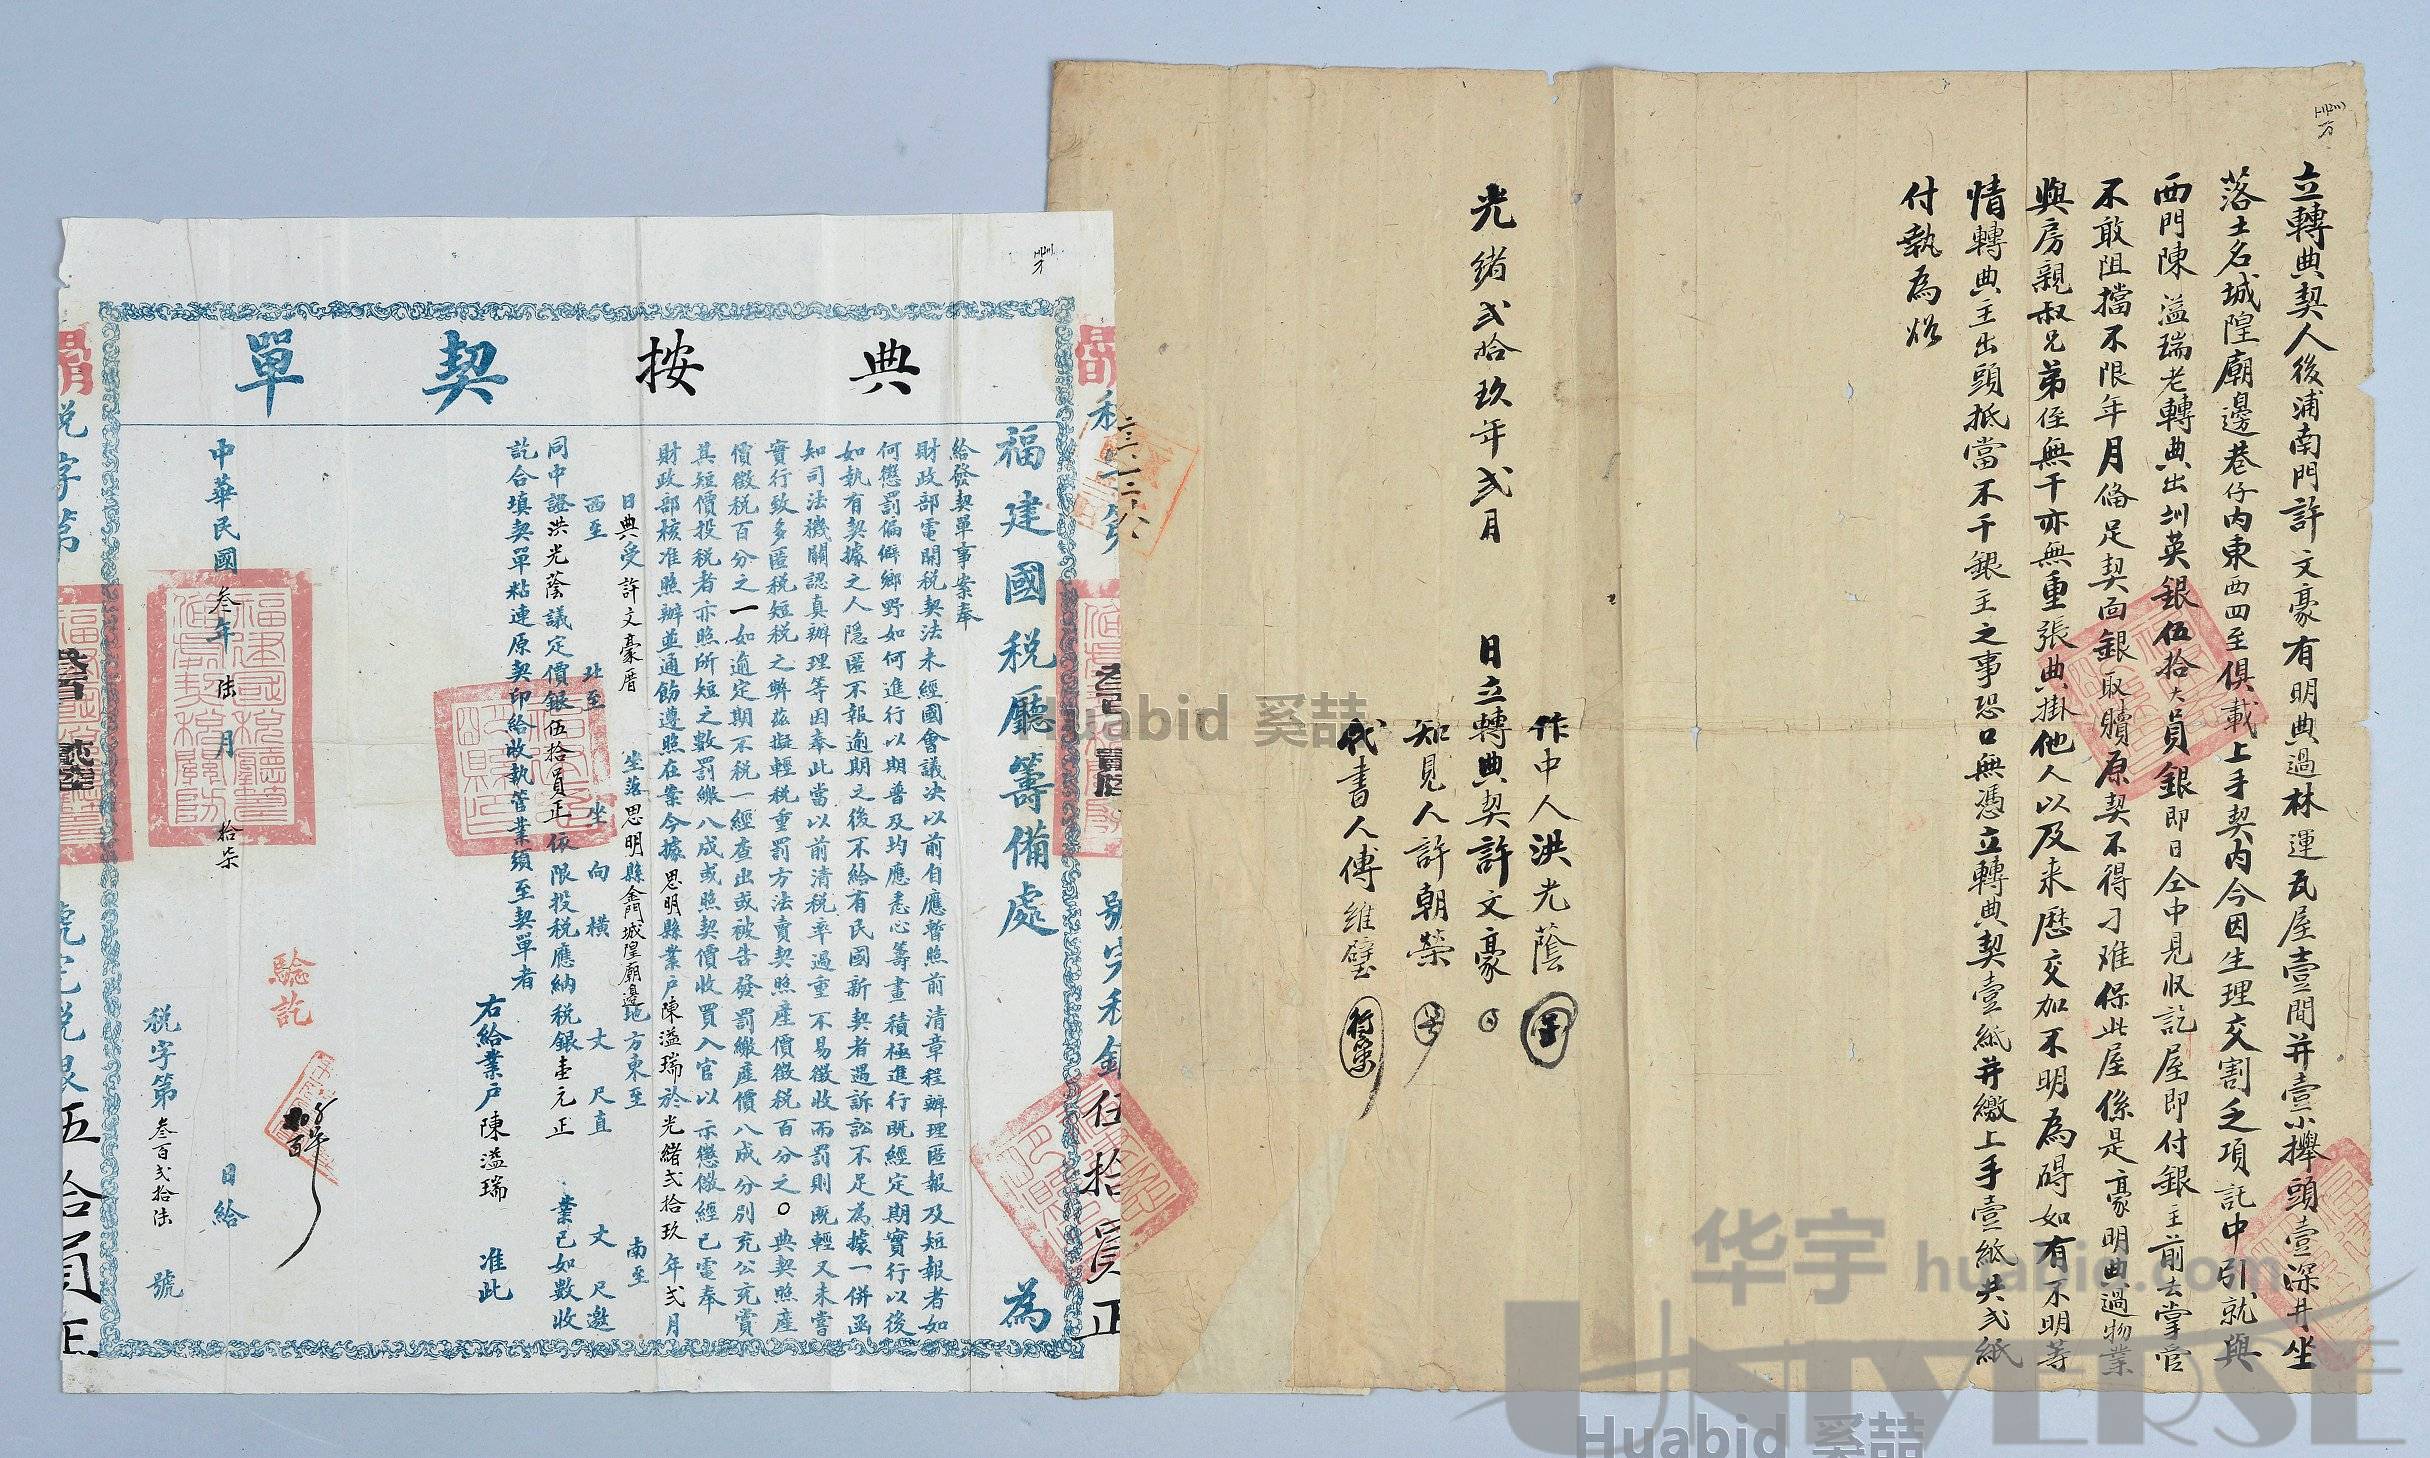 立轉典契人後浦南門許文豪有明典過林運瓦屋壹間并壹小攑頭壹深井坐
落土名城隍廟邊巷仔内東西四至俱載上手契内今因生理交割乏項託中引就與
西門陳溢瑞老轉典出圳英銀伍拾大員銀即日仝中見收訖屋即付銀主前去掌管
不敢阻擋不限年月俻足契面銀取贖原契不得刁难保此屋係是豪明典過物業
與房親叔兄弟侄無干亦無重張典掛他人以及来歷交加不明為碍如有不明等
情轉典主出頭抵當不干銀主之事恐口無憑立轉典契壹紙并繳上手壹紙共弍紙
付執為炤
作中人洪光蔭
光緒弍拾玖年弍月 日立轉典契許文豪
知見人許朝榮
代書人傅維壁
典按契單
福建國税廳籌備處 為
給發契單事案奉
財政部電開税契法未經國會議决以前自應暫照前清章程辦理匿報及短報者如
何懲罰偏僻鄉野如何進行以期普及均應悉心籌畫積極進行既經定期實行以後
如執有契據之人隱匿不報逾期之後不給有民國新契者遇訴訟不足為據一併函
知司法機關認真辦理等因奉此當以前清税率過重不易徵收而罰則既輕又未嘗
實行致多匿税短税之弊茲擬輕税重罰方法賣契照産價徵税百分之〇典契照産
價徵税百分之一如逾定期不税一經查出或被告發罰繳産價八成分别充公充賞
其短價投税者亦照所短之數罰繳八成或照契價收買入官以示懲儆經已電奉
財政部核准照辦並通飭遵照在案今據思明縣業户陳溢瑞於光緒弍拾玖年弍月
日典受許文豪厝 坐落思明縣金門城隍廟邊地方東至 南至
西至 北至 坐 向 横 丈 尺直 丈 尺邀
同中證洪光蔭議定價銀伍拾員正依限投税應納税銀壹元正 業已如數收
訖合填契單粘連原契印給收執管業須至契單者
右給業户陳溢瑞 准此
中華民國叁年陆月拾柒日給
驗訖
税字第叁百弍拾陆號
税字第
號完税銀伍拾員正
华宇 huabid.com
UNIVERSE
Huabid 奚喆
Huabid 奚喆